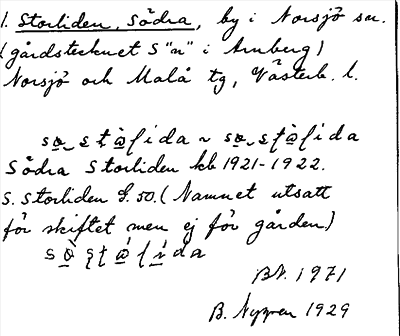 1. Storliden, Södra, by i Norsjö sn.
(gårdstecknet S"n" i Arnberg)
Norsjö och Malå tg, Västerb. l.
Södra Storliden kb 1921-1922.
S. Storliden 50. (Namnet utsatt
för skiftet men ej för gården)
BN. 1971
B. Nygren 1929